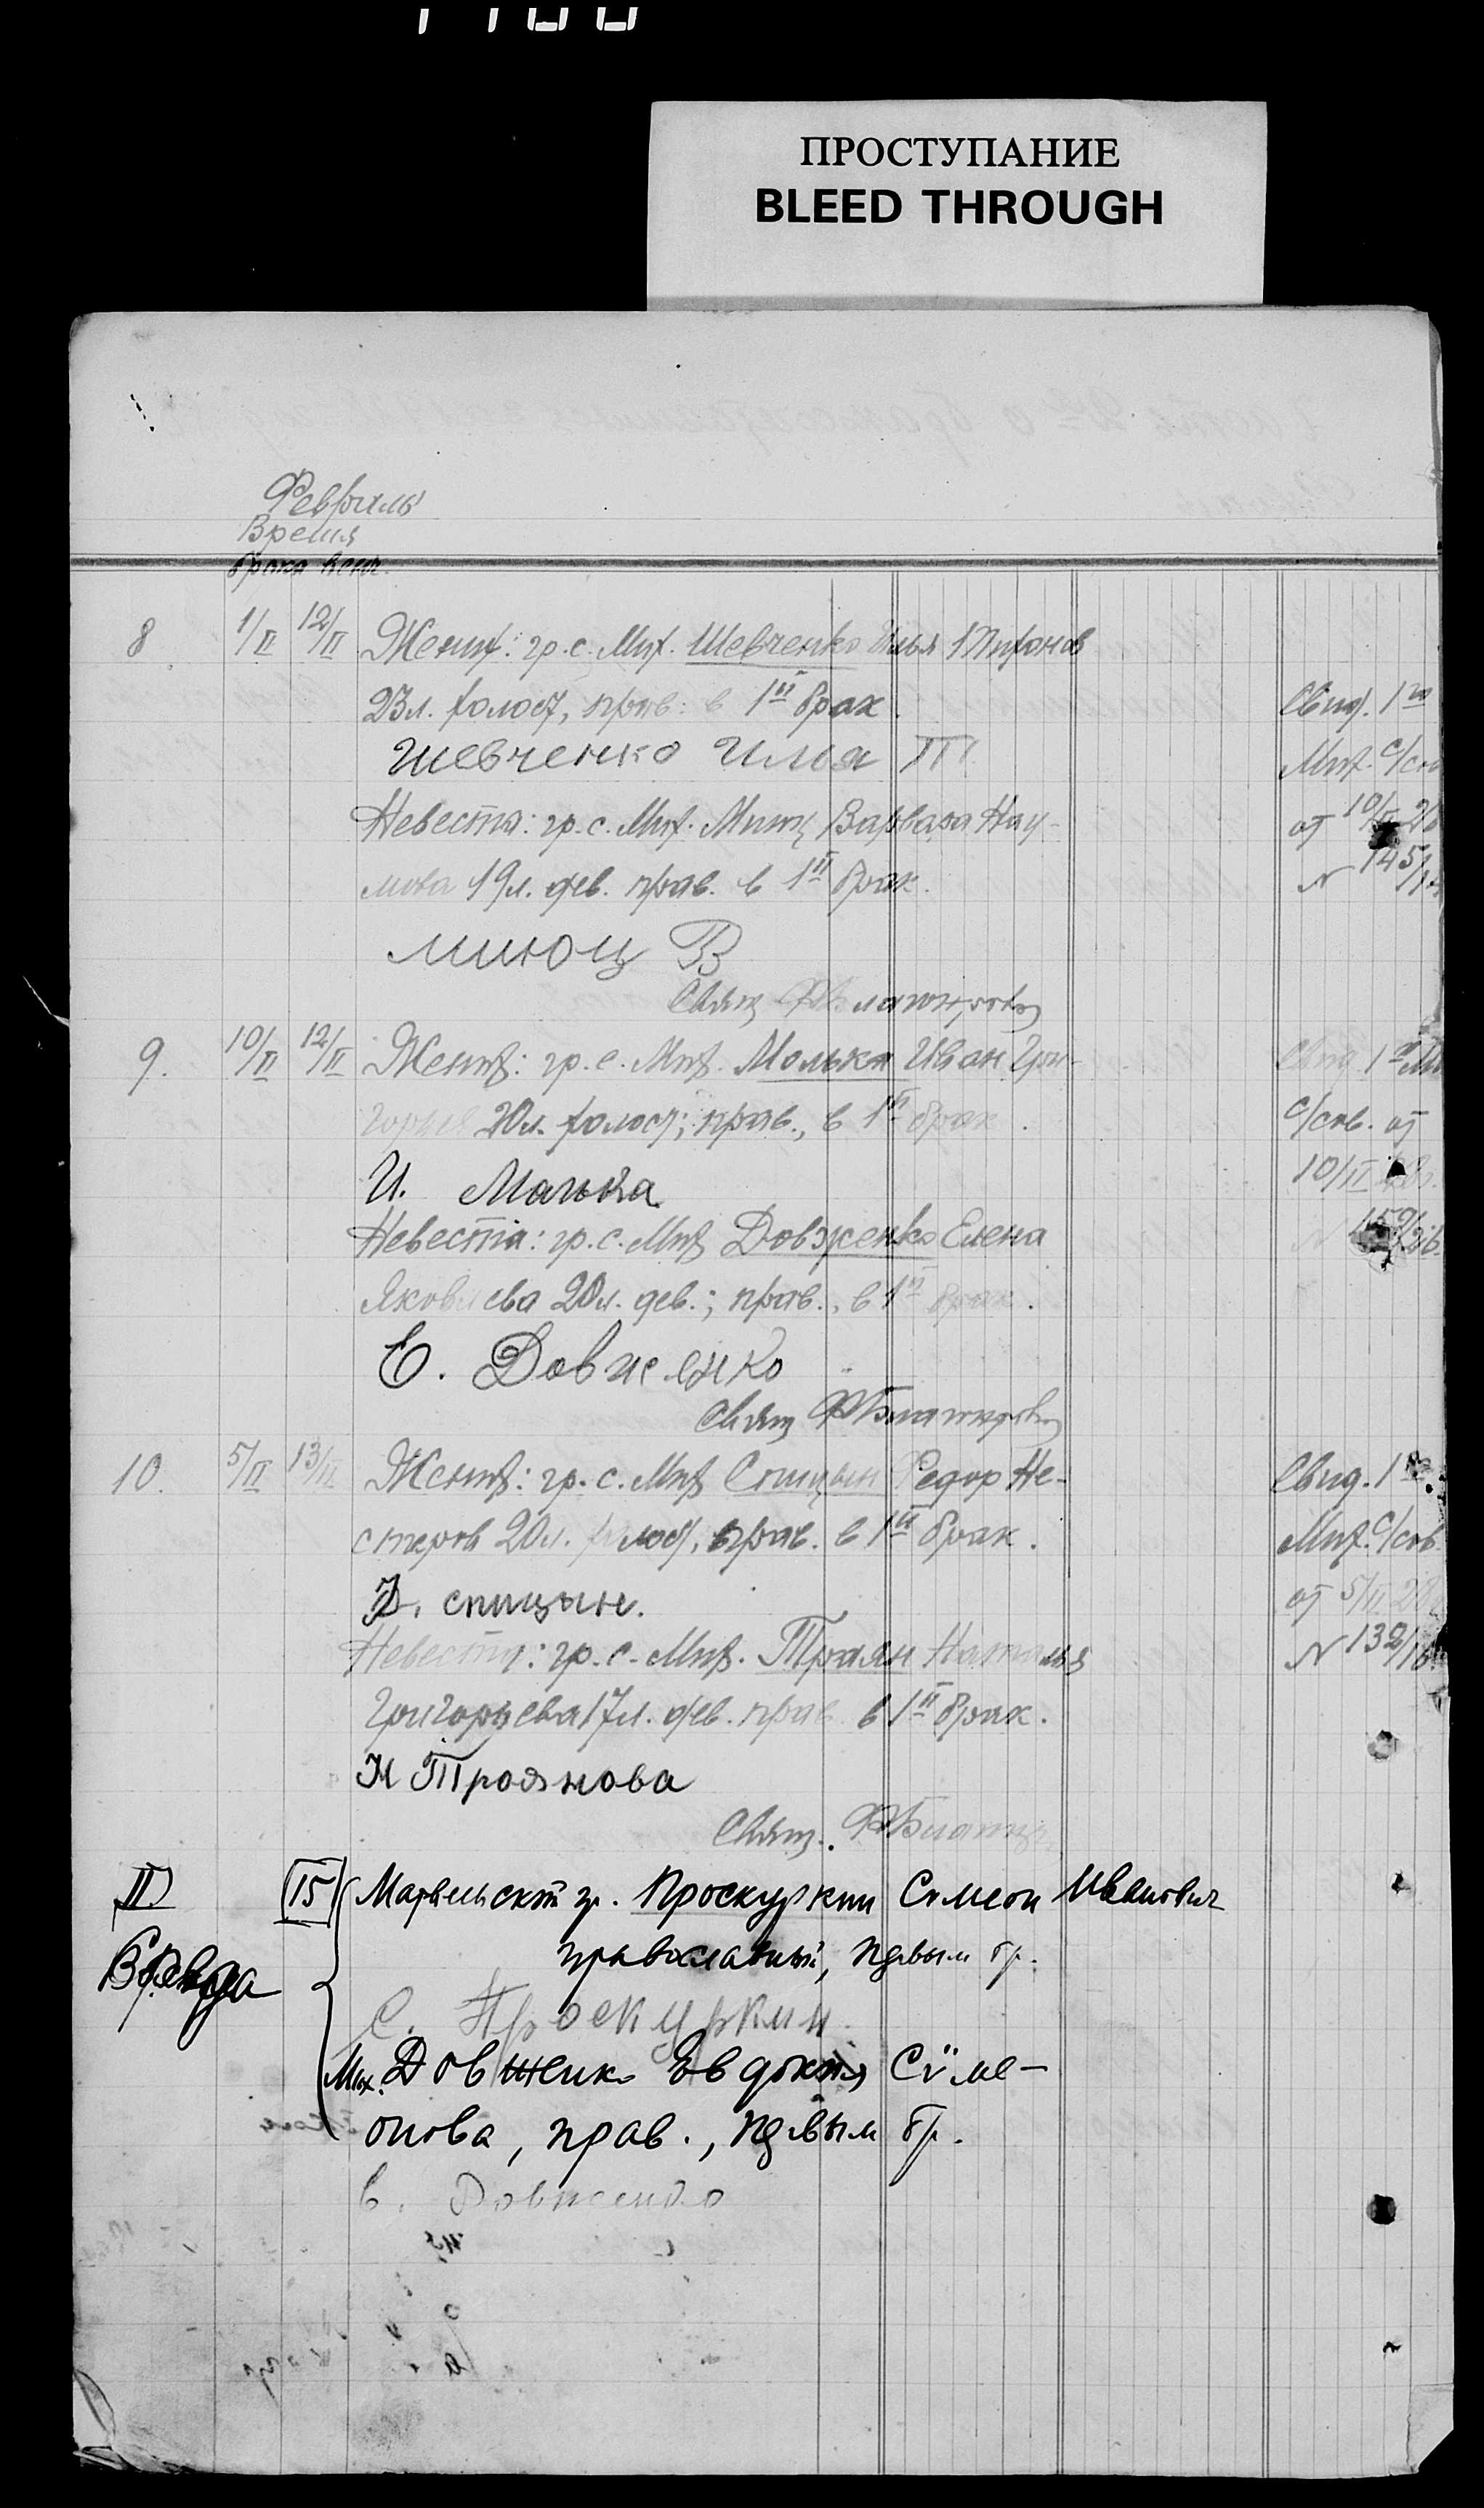 ПРОСТУПАНИЕ
BLEED THROUGH
Февраль
Время
брака венч.
8 1/II 12/II Жених: гр. с. Мих. Шевченко Илья
23л. холост, прав: в 1й брак.
Шевченко Илья
Невеста: гр. с. Мих. Миюц Варвара Нау-
мова 19л. дев. прав. в 1й брак.
Миюц В
Свящ
Свид. 1го
Мих. с/сов
от 10/II
N 145/
9. 10/II 12/II Жених: гр. с. Мих. Молька Иван Гри-
горьев 20л. холост; прав., в 1й брак.
И. Малька
Невеста: гр. с. Мих Довженко Елена
Яковлева 20л. дев.; прав., в 1й брак.
Е. Довженко
Свящ
Свид 1го Ми
с/сов. от
10/II 28г.
N
10. 5/II 13/II Жених: гр. с. Мих Спицын Федор Не-
стеров 20л. холост, прав. в 1й брак.
Ф. спицын.
Невеста: гр. с. Мих. Траян Наталья
Григорьева 17л. дев. прав в 1й брак.
Н Троянова
Свящ.
Свид. 1го
Мих. с/сов.
от 5/II 28
N 132/
II. 15 гр. Проскуркин Симеон Иванович
православный, первым бр.
С. Проскуркин.
Мих. Довженко Евдокия Симе-
онова, прав., первым бр.
Е. Довженко